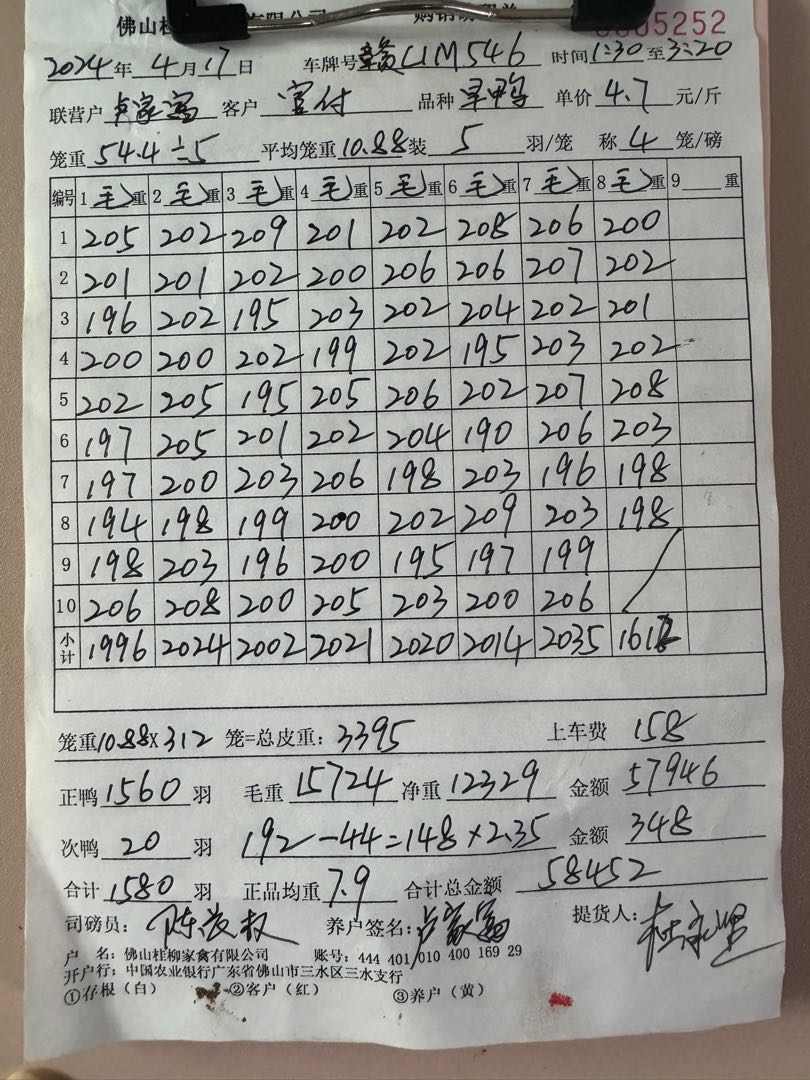 佛山桂 有限公司 购销 单 0005252
2024年 4月17日 车牌号 赣L1M546 时间 1:30至3:20
联营户 卢家富 客户 官付 品种 旱鸭 单价 4.7 元/斤
笼重 54.4÷5 平均笼重 10.88 装 5 羽/笼 称 4 笼/磅
编号 1毛重 2毛重 3毛重 4毛重 5毛重 6毛重 7毛重 8毛重 9 重
1 205 202 209 201 202 208 206 200
2 201 201 202 200 206 206 207 202
3 196 202 195 203 202 204 202 201
4 200 200 202 199 202 195 203 202
5 202 205 195 205 206 202 207 208
6 197 205 201 202 204 190 206 203
7 197 200 203 206 198 203 196 198
8 194 198 199 200 202 209 203 198
9 198 203 196 200 195 197 199
10 206 208 200 205 203 200 206
小计 1996 2024 2002 2021 2020 2014 2035 1612
笼重10.88×312 笼=总皮重: 3395 上车费 158
正鸭 1560 羽 毛重 15724 净重 12329 金额 57946
次鸭 20 羽 192-44=148×2.35 金额 348
合计 1580 羽 正品均重 7.9 合计总金额 58452
司磅员: 陈 权 养户签名: 卢家富 提货人:
户 名: 佛山桂柳家禽有限公司 账号: 444 401 010 400 169 29
开户行: 中国农业银行广东省佛山市三水区三水支行
①存根（白） ②客户（红） ③养户（黄）